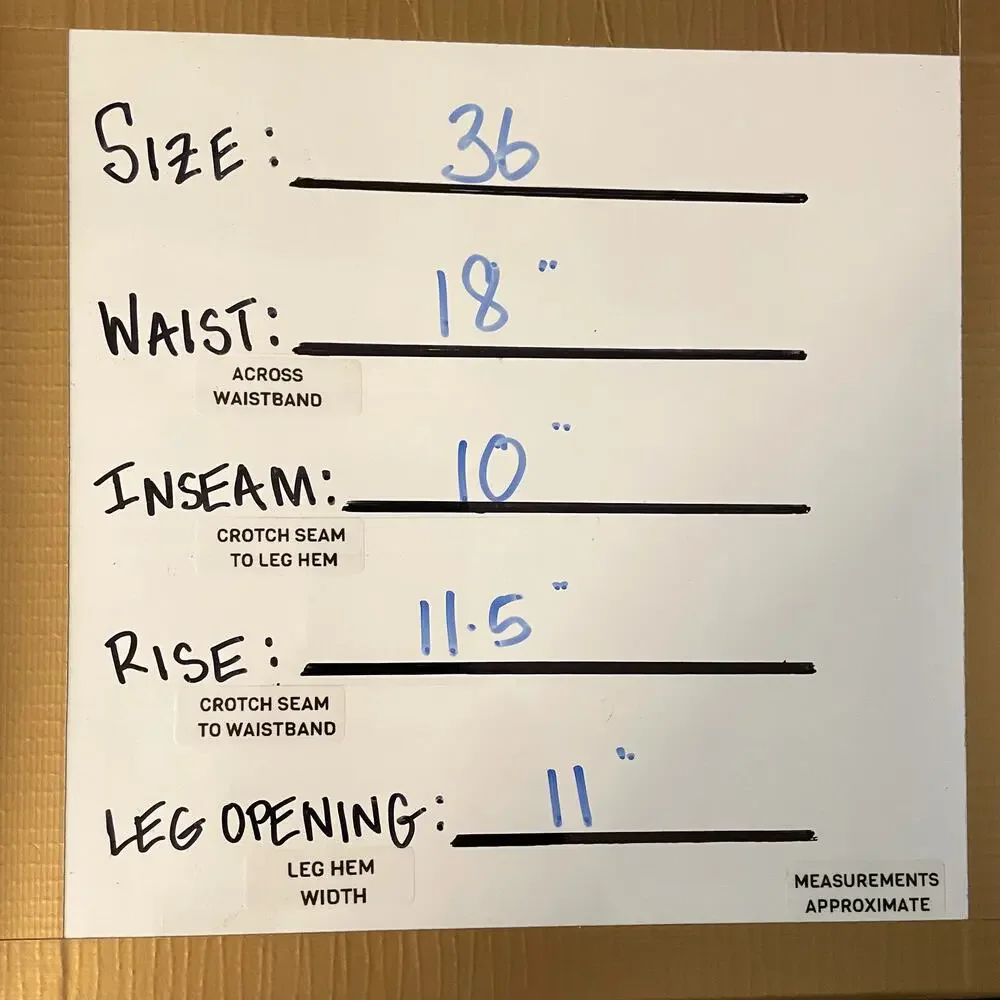 SIZE: 36
WAIST: 18"
ACROSS
WAISTBAND
INSEAM: 10"
CROTCH SEAM
TO LEG HEM
RISE: 11.5"
CROTCH SEAM
TO WAISTBAND
LEG OPENING: 11"
LEG HEM
WIDTH
MEASUREMENTS
APPROXIMATE